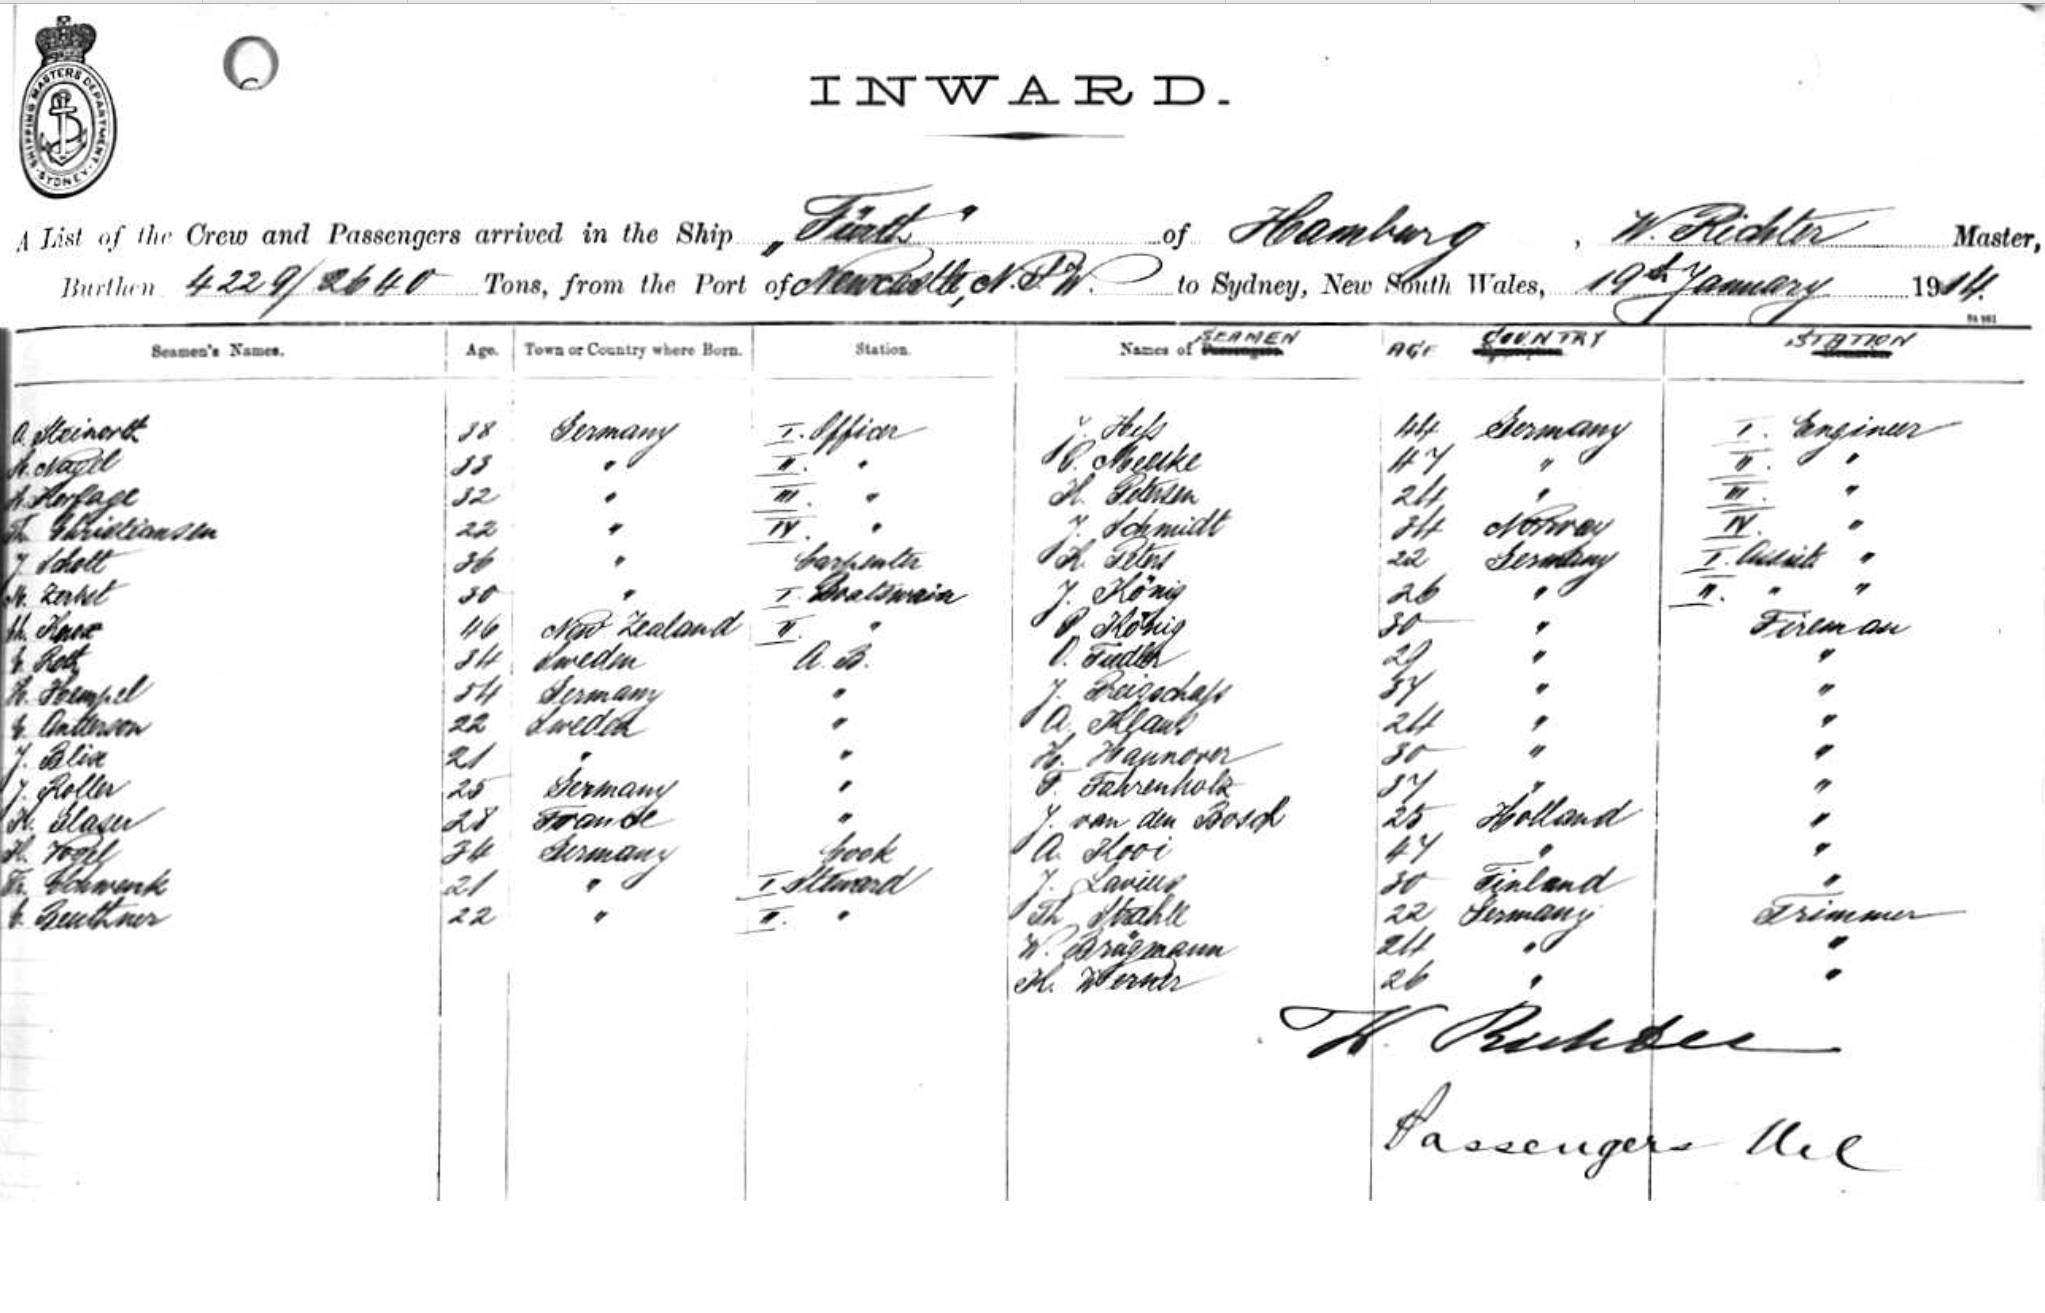 SHIPPING MASTERS DEPARTMENT · SYDNEY ·
INWARD.
A List of the Crew and Passengers arrived in the Ship „Fürth" of Hamburg, W. Richter Master,
Burthen 4229/2640 Tons, from the Port of Newcastle, N.S.W. to Sydney, New South Wales, 19th January 1914.
Seamen's Names. Age. Town or Country where Born. Station. Names of SEAMEN AGE COUNTRY STATION
38 Germany I. Officer J. Hess 44 Germany I. Engineer
Nagel 33 " II. " Meeske 47 " II. "
32 " III. " H. Petersen 24 " III. "
Th. Christiansen 22 " IV. " J. Schmidt 34 Norway IV. "
J. Schott 36 " Carpenter Peters 22 Germany I. Assist. "
Zerbst 30 " I. Boatswain J. König 26 " II. " "
Knox 46 New Zealand II. " P. König 30 " Fireman
Roth 34 Sweden A. B. O. Fiedler 29 " "
H. Hempel 54 Germany " J. 37 " "
Andersson 22 Sweden " A. Klaus 24 " "
J. Blix 21 " " H. Hannover 30 " "
J. Roller 25 Germany " F. Fahrenholz 37 " "
H. Glaser 28 France " J. van den Bosch 25 Holland "
H. Vogel 34 Germany Cook A. Kooi 47 " "
Fr. Schwenk 21 " I. Steward J. 30 Finland "
Beuthner 22 " II. " Th. Strahle 22 Germany Trimmer
W. Brügmann 24 " "
H. Werner 26 " "
W. Richter
Passengers Nil